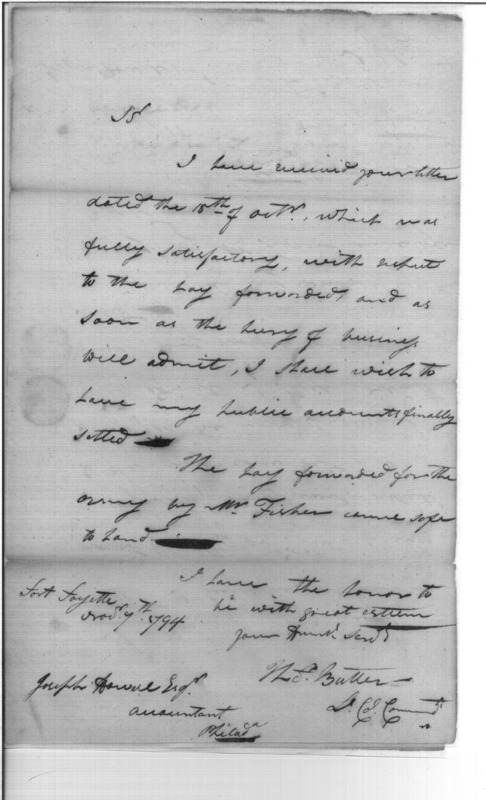 Sr
I have received your letter
dated the 15th of Octr. which was
fully satisfactory, with respect
to the pay forwarded, and as
soon as the hurry of business
will admit, I shall wish to
have my public accounts finally
settled
The pay forwarded for the
army by Mr. Fisher came safe
to hand
I have the honor to
be with great esteem
your Humb. Servt
Fort Fayette
Novr. 7th. 1794
Thos. Butler
Lt. Col. Commdt.
Joseph Howell Esqr.
accountant
Philada